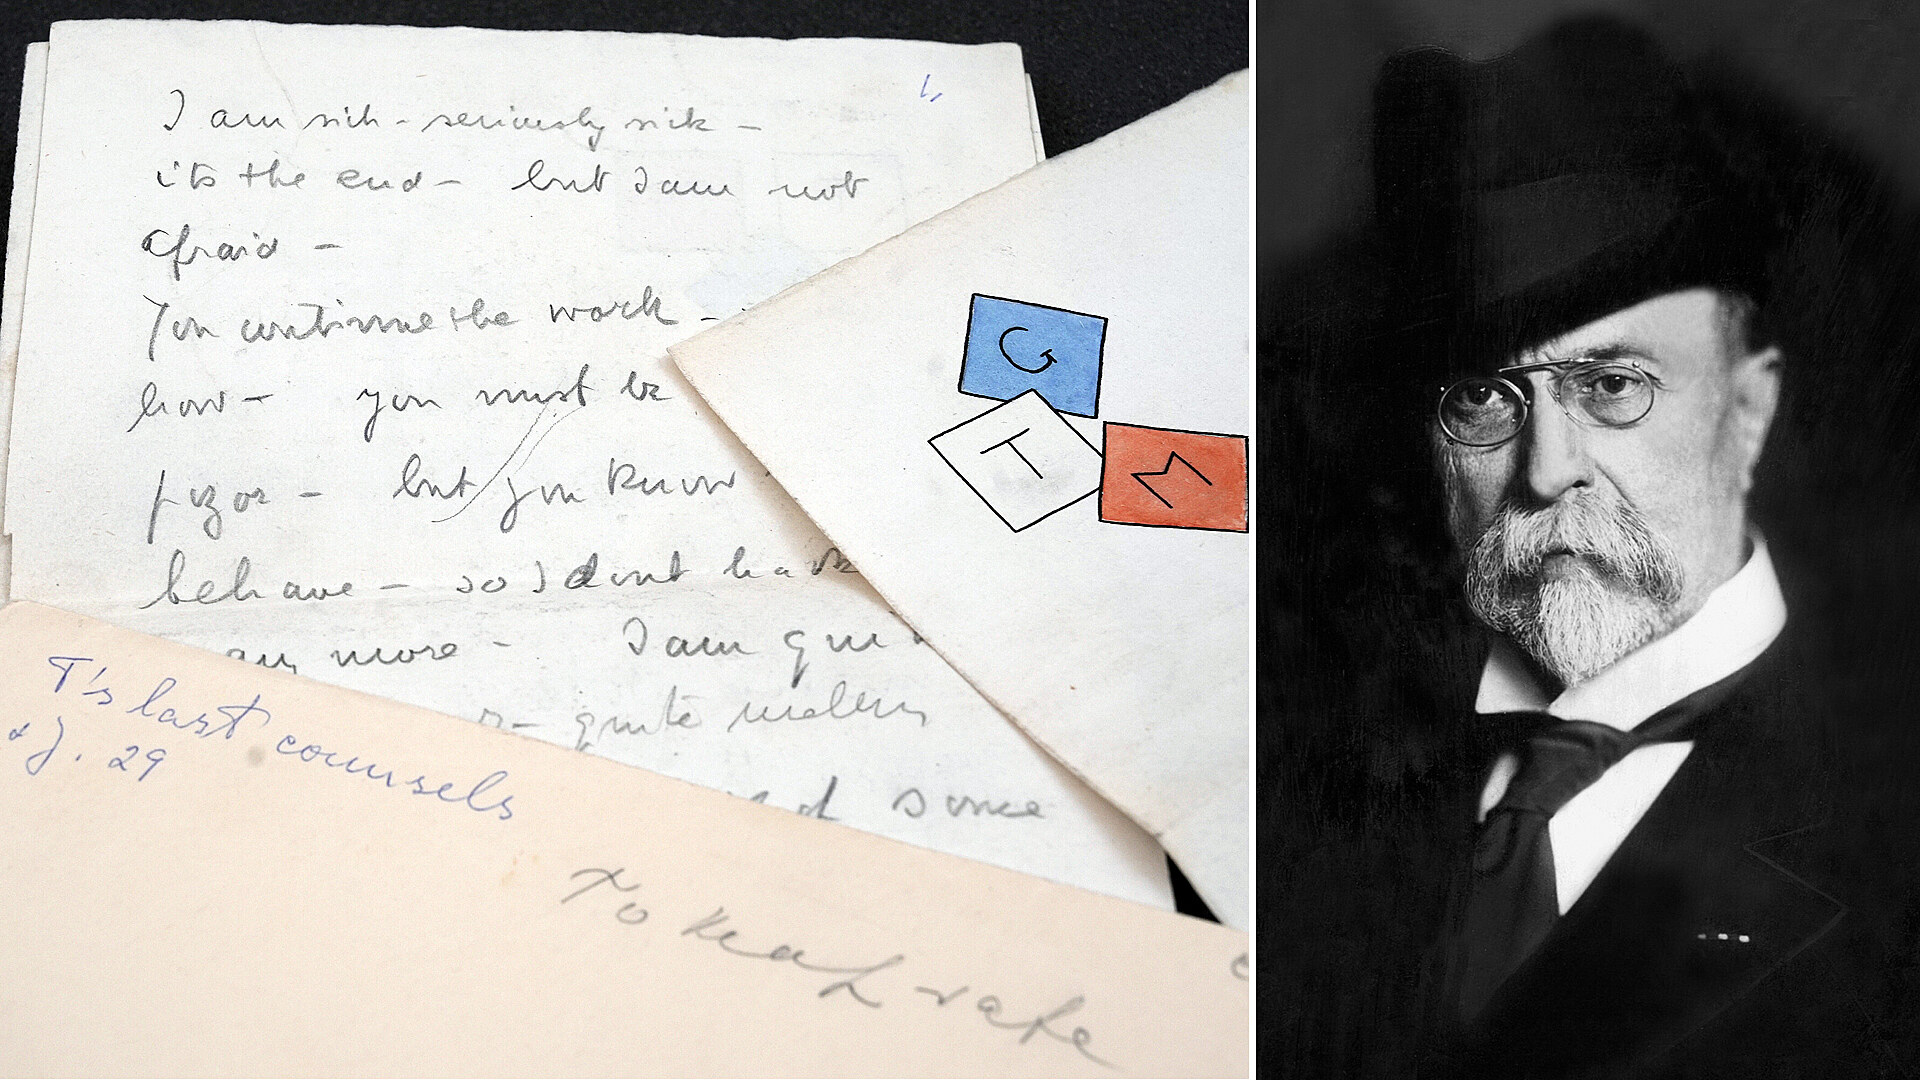 1,
I am sick - seriously sick -
its the end - but I am not
afraid -
You continue the work -
how - you must be
pozor - but you know
behave - so I dont
any more - I am
quite
some
G
T
M
T's last counsels
J. 29
To keap safe